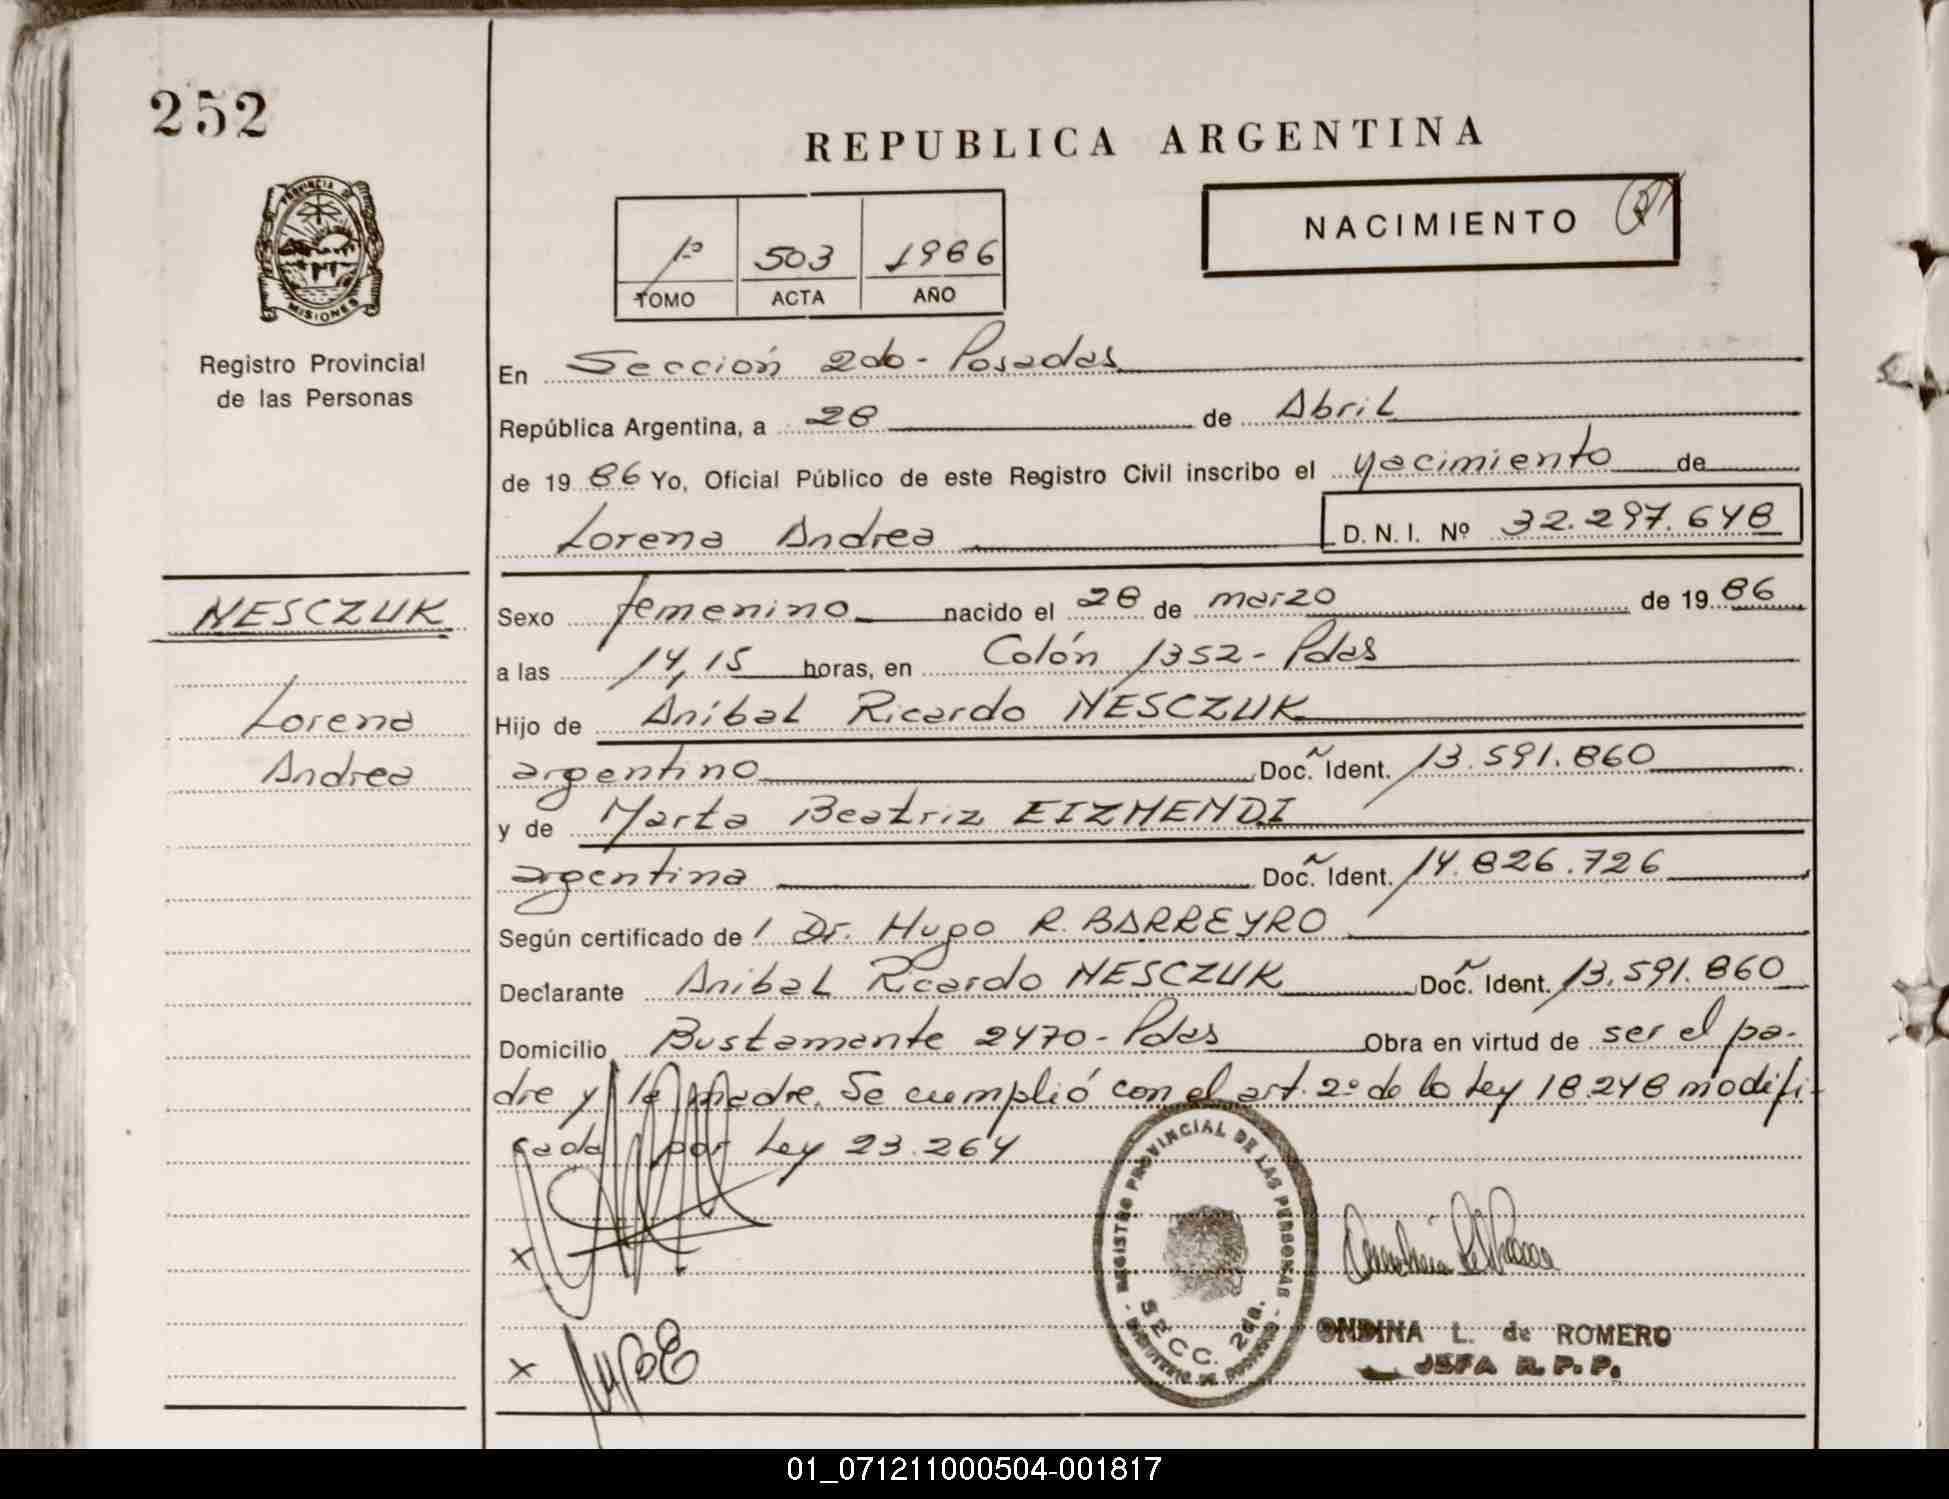 252
REPUBLICA ARGENTINA
PROVINCIA DE
MISIONES
1º 503 1986
TOMO ACTA AÑO
NACIMIENTO
Registro Provincial
de las Personas
En Sección 2da - Posadas
República Argentina, a 28 de Abril
de 19 86 Yo, Oficial Público de este Registro Civil inscribo el nacimiento de
Lorena Andrea D. N. I. Nº 32.297.648
NESCZUK
Lorena
Andrea
Sexo femenino nacido el 28 de marzo de 19 86
a las 14,15 horas, en Colón 1352 - Pdas
Hijo de Aníbal Ricardo NESCZUK
argentino Doc. Ident. 13.591.860
y de Marta Beatriz EIZMENDI
argentina Doc. Ident. 14.826.726
Según certificado de 1 Dr. Hugo R. BARREYRO
Declarante Anibal Ricardo NESCZUK Doc. Ident. 13.591.860
Domicilio Bustamante 2470 - Pdas Obra en virtud de ser el pa-
dre y la madre. Se cumplió con el art. 2º de la Ley 18.248 modifi-
cada por Ley 23.264
REGISTRO PROVINCIAL DE LAS PERSONAS
SECC. 2da.
x
x MBE
ONDINA L. de ROMERO
JEFA R. P. P.
01_071211000504-001817